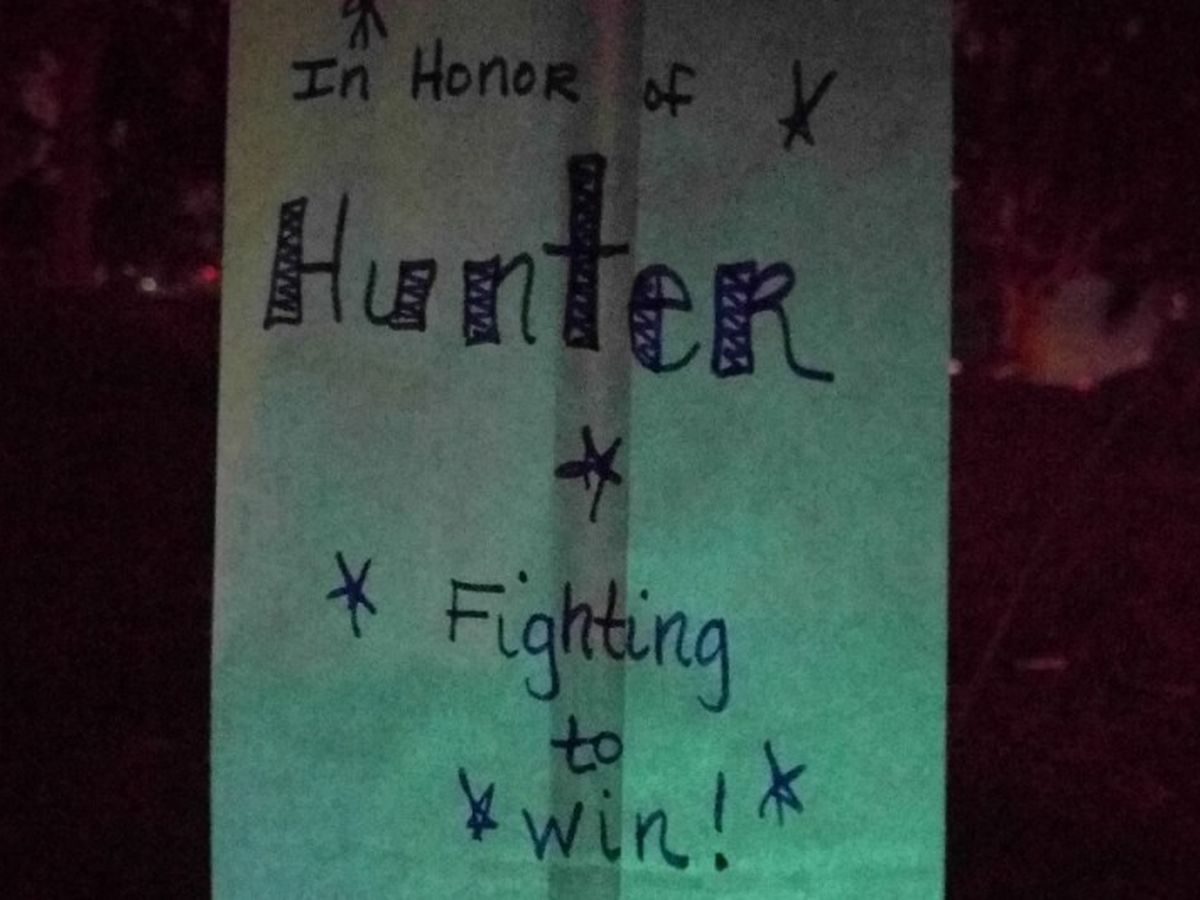 In Honor of
Hunter
Fighting
to
win!